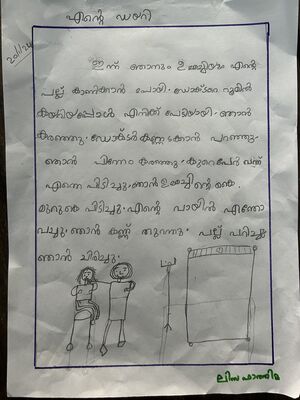 എന്റെ ഡയറി
20/1/24
ഇന്ന് ഞാനും ഉമ്മച്ചിയും എന്റെ
പല്ല് കാണിക്കാൻ പോയി. ഡോക്ടറെ റൂമിൽ
കയറിയപ്പോൾ എനിക്ക് പേടിയായി. ഞാൻ
കരഞ്ഞു. ഡോക്ടർ കണ്ണടക്കാൻ പറഞ്ഞു.
ഞാൻ പിന്നേം കരഞ്ഞു. കുറെപേർ വന്ന്
എന്നെ പിടിച്ചു. ഞാൻ ഉമ്മച്ചിന്റെ കൈ
മുറുകെ പിടിച്ചു. എന്റെ വായിൻ എന്തോ
വച്ചു. ഞാൻ കണ്ണ് തുറന്നു. പല്ല് പറിച്ചു
ഞാൻ ചിരിച്ചു.
ലിസ ഫാത്തിമ